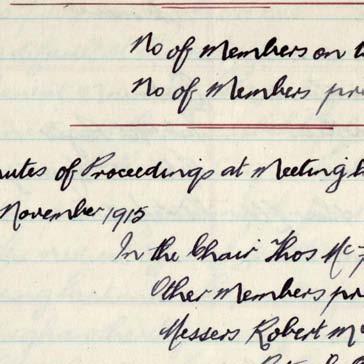 No of Members on
No of Members
of Proceedings at Meeting
November 1915
In the Chair Thos Mc
Other Members
Messers Robert